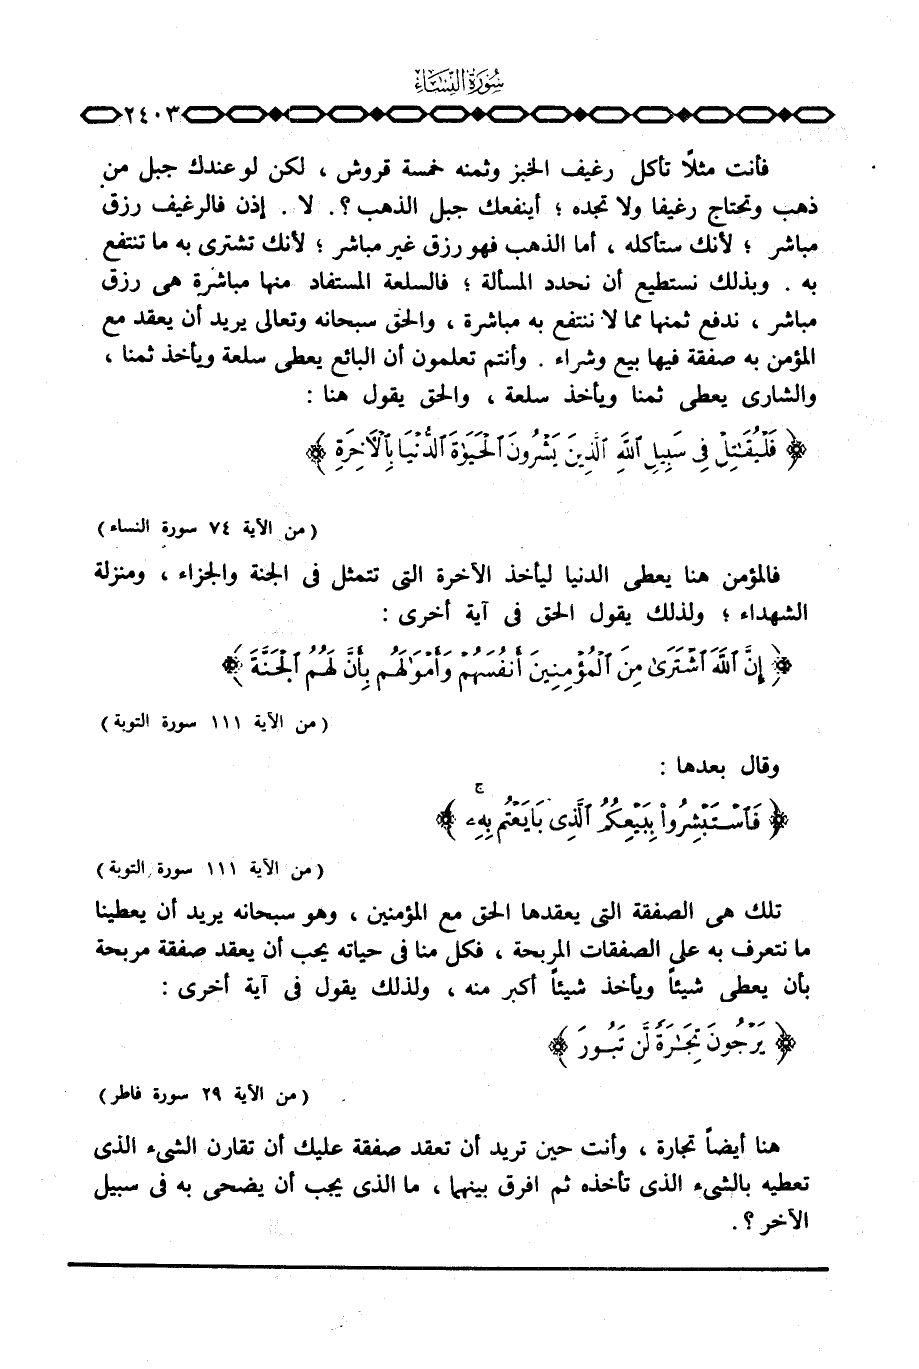 سورة النساء
٢٤٠٣
فأنت مثلاً تأكل رغيف الخبز وثمنه خمسة قروش ، لكن لو عندك جبل من
ذهب وتحتاج رغيفا ولا تجده ؛ أينفعك جبل الذهب ؟. لا . إذن فالرغيف رزق
مباشر ؛ لأنك ستأكله ، أما الذهب فهو رزق غير مباشر ؛ لأنك تشترى به ما تنتفع
به . وبذلك نستطيع أن نحدد المسألة ؛ فالسلعة المستفاد منها مباشرة هى رزق
مباشر ، ندفع ثمنها مما لا ننتفع به مباشرة ، والحق سبحانه وتعالى يريد أن يعقد مع
المؤمن به صفقة فيها بيع وشراء . وأنتم تعلمون أن البائع يعطى سلعة ويأخذ ثمنا ،
والشارى يعطى ثمنا ويأخذ سلعة ، والحق يقول هنا :
﴿ فَلْيُقَـٰتِلْ فِى سَبِيلِ ٱللَّهِ ٱلَّذِينَ يَشْرُونَ ٱلْحَيَوٰةَ ٱلدُّنْيَا بِٱلْـَٔاخِرَةِ ﴾
( من الآية ٧٤ سورة النساء )
فالمؤمن هنا يعطى الدنيا ليأخذ الآخرة التى تتمثل فى الجنة والجزاء ، ومنزلة
الشهداء ؛ ولذلك يقول الحق فى آية أخرى :
﴿ إِنَّ ٱللَّهَ ٱشْتَرَىٰ مِنَ ٱلْمُؤْمِنِينَ أَنفُسَهُمْ وَأَمْوَٰلَهُم بِأَنَّ لَهُمُ ٱلْجَنَّةَ ﴾
( من الآية ١١١ سورة التوبة )
وقال بعدها :
﴿ فَٱسْتَبْشِرُوا۟ بِبَيْعِكُمُ ٱلَّذِى بَايَعْتُم بِهِۦ ۚ ﴾
( من الآية ١١١ سورة التوبة )
تلك هى الصفقة التى يعقدها الحق مع المؤمنين ، وهو سبحانه يريد أن يعطينا
ما نتعرف به على الصفقات المربحة ، فكل منا فى حياته يجب أن يعقد صفقة مربحة
بأن يعطى شيئاً ويأخذ شيئاً أكبر منه ، ولذلك يقول فى آية أخرى :
﴿ يَرْجُونَ تِجَـٰرَةً لَّن تَبُورَ ﴾
( من الآية ٢٩ سورة فاطر )
هنا أيضاً تجارة ، وأنت حين تريد أن تعقد صفقة عليك أن تقارن الشىء الذى
تعطيه بالشىء الذى تأخذه ثم افرق بينهما ، ما الذى يجب أن يضحى به فى سبيل
الآخر ؟ .